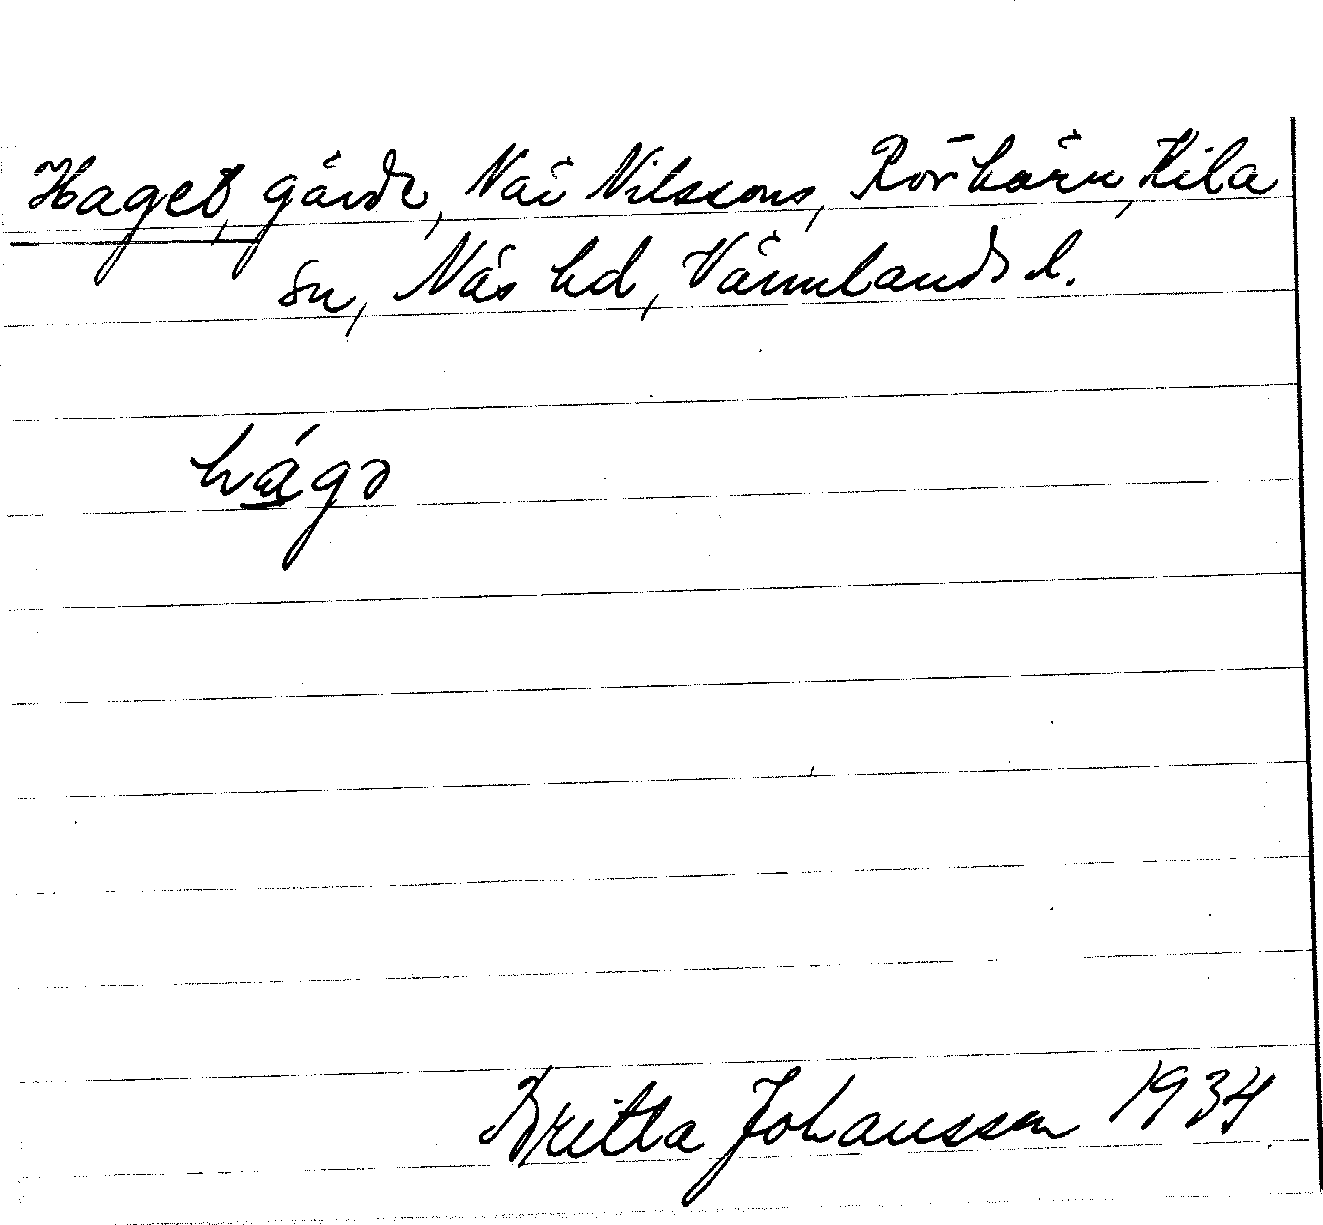 Haget, gärde, Nai Nilssons, Rörkärn, Kila
sn, Näs hd, Värmlands l.
hágə
Britta Johansson 1934